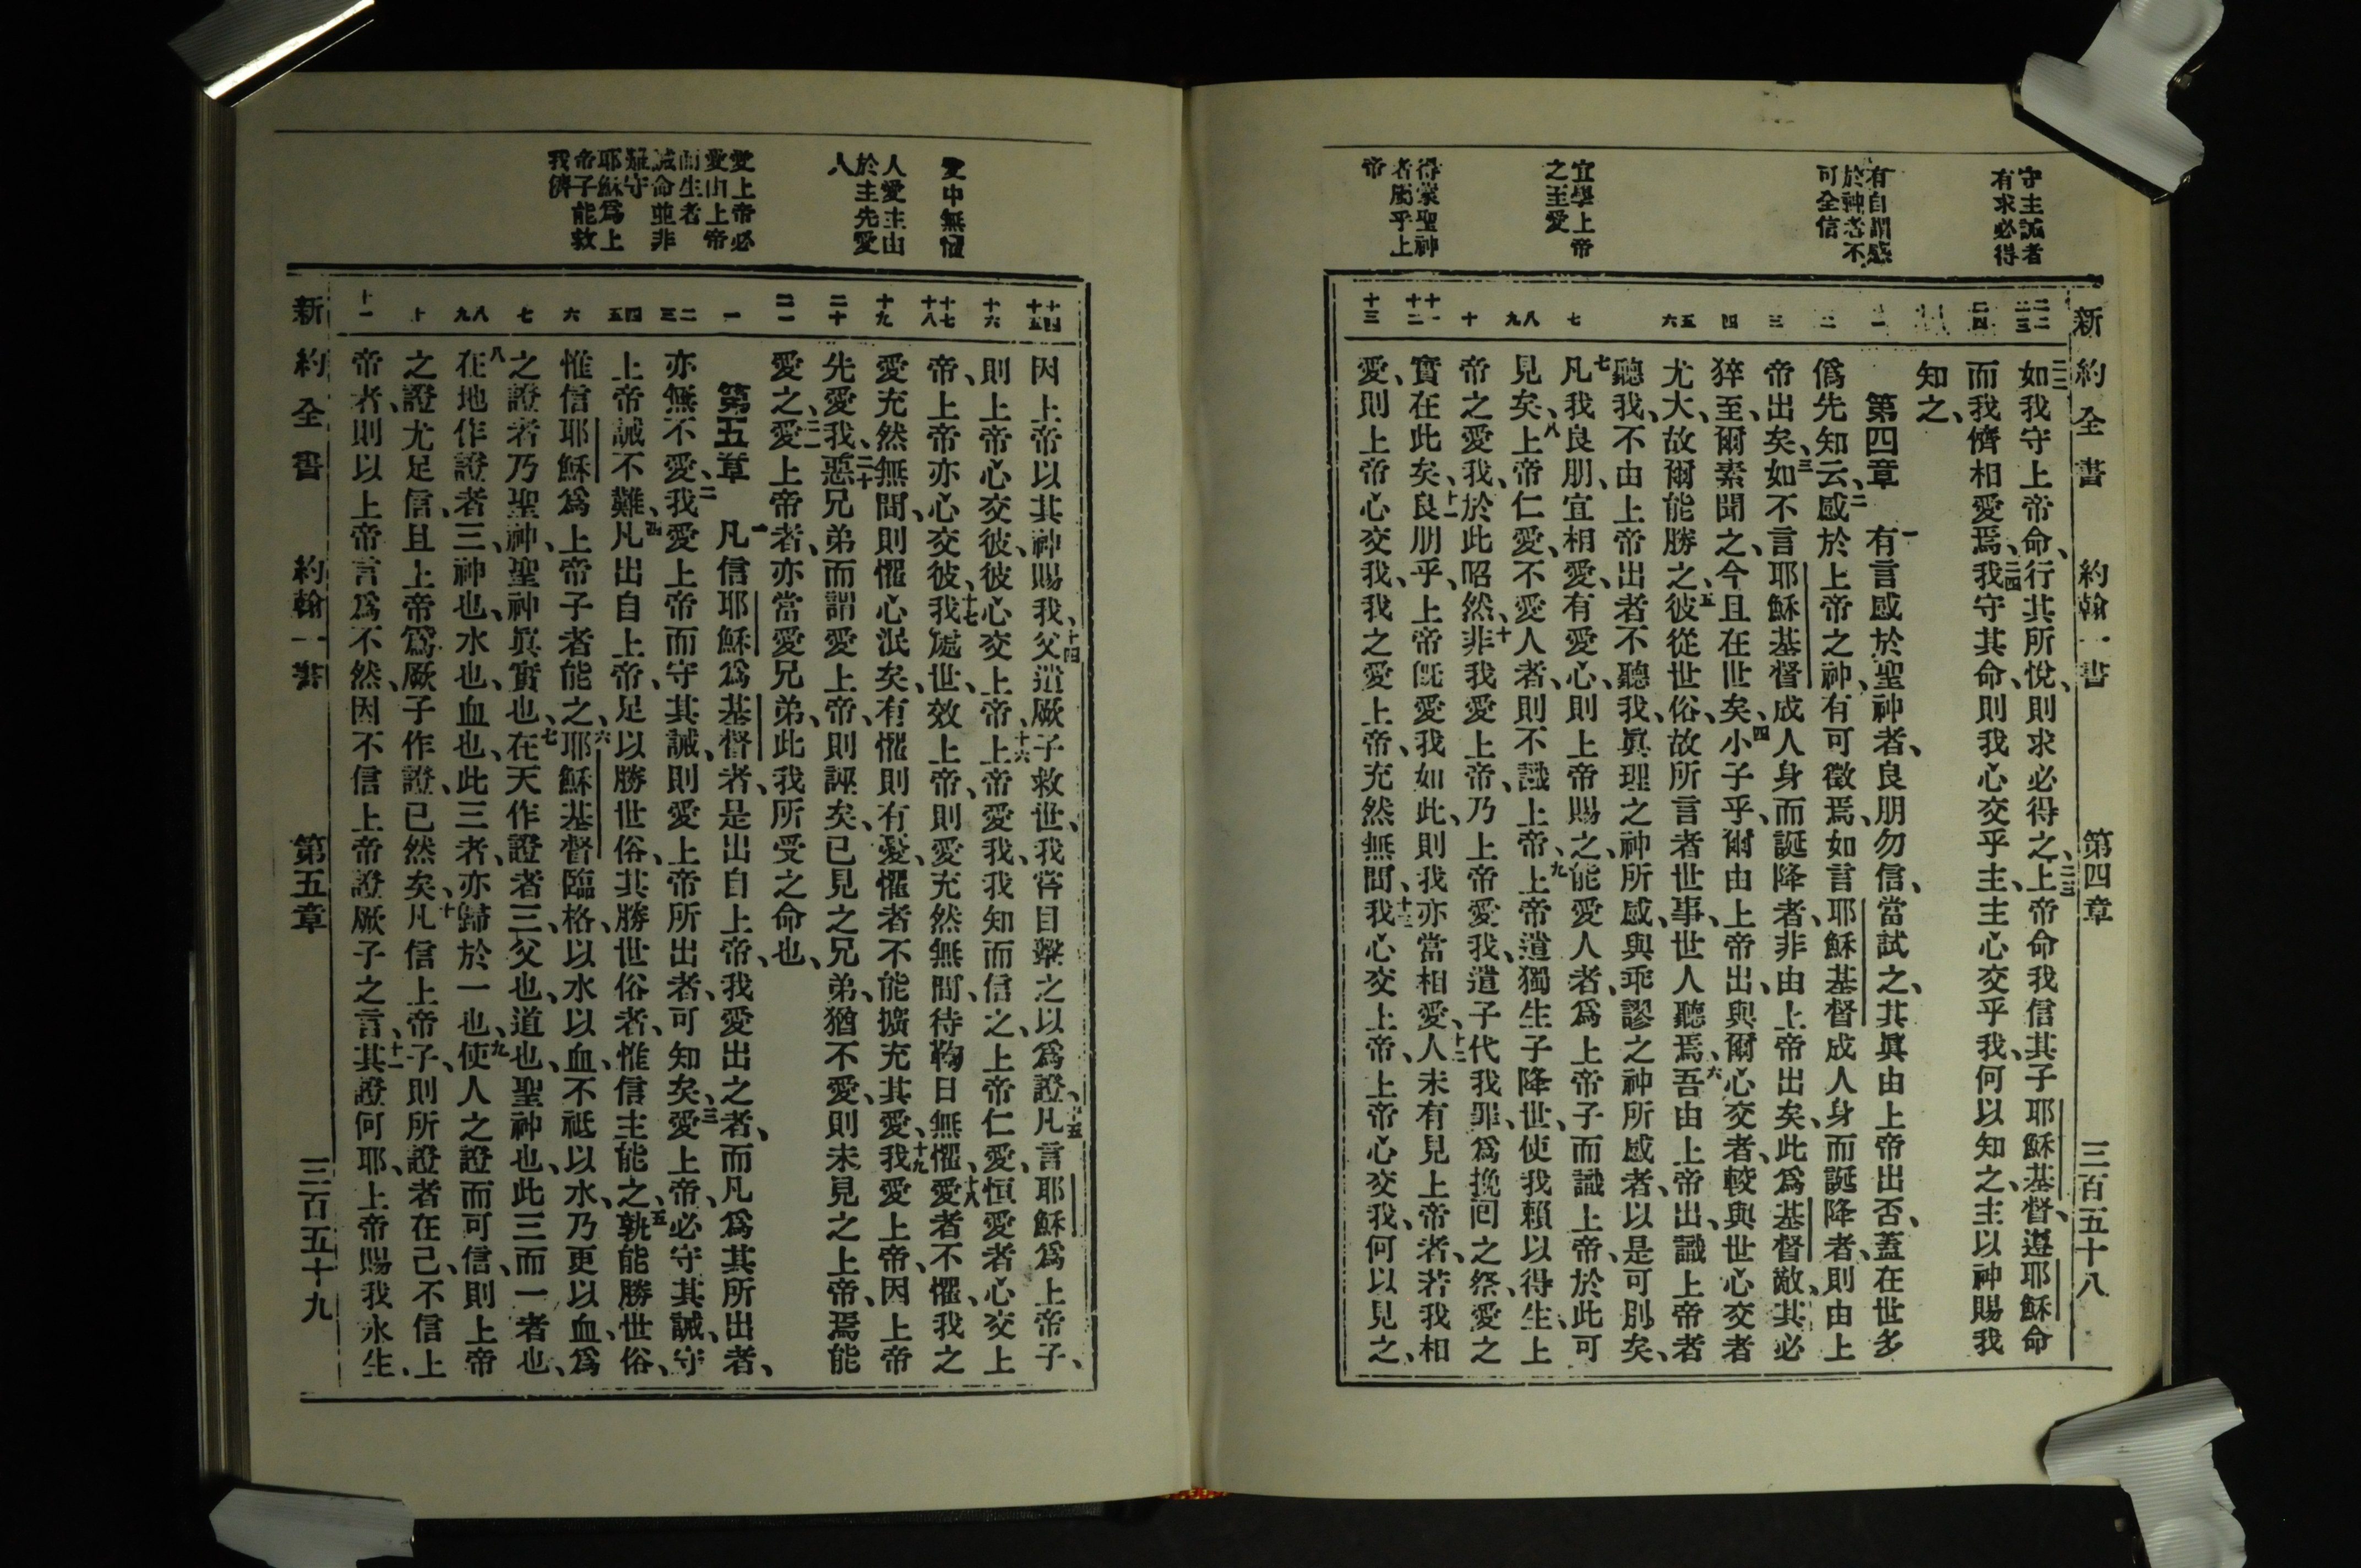 新約全書 約翰一書 第四章 三百五十八
守主誡者
有求必得
有自謂感
於神者不
可全信
宜學上帝
之至愛
得蒙聖神
者屬乎上
帝
二二
二三
二四
一
二
三
四
五
六
七
八
九
十
十一
十二
十三
如我守上帝命、行其所悅、則求必得之、二三上帝命我信其子耶穌基督、遵耶穌命
而我儕相愛焉、二四我守其命、則我心交乎主、主心交乎我、何以知之、主以神賜我
知之、
第四章 一有言感於聖神者、良朋勿信、當試之、其眞由上帝出否、蓋在世多
僞先知云、二感於上帝之神、有可徵焉、如言耶穌基督成人身而誕降者、則由上
帝出矣、三如不言耶穌基督成人身而誕降者、非由上帝出矣、此爲基督敵、其必
猝至、爾素聞之、今且在世矣、四小子乎、爾由上帝出、與爾心交者、較與世心交者
尤大、故爾能勝之、五彼從世俗、故所言者世事、世人聽焉、六吾由上帝出、識上帝者
聽我、不由上帝出者不聽我、眞理之神所感、與乖謬之神所感者、以是可別矣、
七凡我良朋、宜相愛、有愛心、則上帝賜之、能愛人者、爲上帝子而識上帝、於此可
見矣、八上帝仁愛、不愛人者、則不識上帝、九上帝遣獨生子降世、使我賴以得生、上
帝之愛我、於此昭然、十非我愛上帝、乃上帝愛我、遣子代我罪、爲挽回之祭、愛之
實在此矣、十一良朋乎、上帝旣愛我如此、則我亦當相愛、十二人未有見上帝者、若我相
愛、則上帝心交我、我之愛上帝、充然無間、十三我心交上帝、上帝心交我、何以見之、
愛中無懼
人愛主由
於主先愛
人
愛上帝必
愛由上帝
而生者
誡命並非
難守
耶穌爲上
帝子能救
我儕
十四
十五
十六
十七
十八
十九
二十
二一
一
二
三
四
五
六
七
八
九
十
十一
因上帝以其神賜我、十四父遣厥子救世、我嘗目擊之以爲證、十五凡言耶穌爲上帝子、
則上帝心交彼、彼心交上帝、十六上帝愛我、我知而信之、上帝仁愛、恒愛者、心交上
帝、上帝亦心交彼、十七我處世、效上帝、則愛充然無間、待鞫日無懼、十八愛者不懼、我之
愛充然無間、則懼心泯矣、有懼則有憂、懼者不能擴充其愛、十九我愛上帝、因上帝
先愛我、二十惡兄弟而謂愛上帝、則誣矣、已見之兄弟、猶不愛、則未見之上帝、焉能
愛之、二一愛上帝者、亦當愛兄弟、此我所受之命也、
第五章 一凡信耶穌爲基督者、是出自上帝、我愛出之者、而凡爲其所出者、
亦無不愛、二我愛上帝而守其誡、則愛上帝所出者、可知矣、三愛上帝、必守其誡、守
上帝誡不難、四凡出自上帝、足以勝世俗、其勝世俗者、惟信主能之、五孰能勝世俗、
惟信耶穌爲上帝子者能之、六耶穌基督臨格、以水以血、不祗以水、乃更以血、爲
之證者乃聖神、聖神眞實也、七在天作證者三、父也、道也、聖神也、此三而一者也、
八在地作證者三、神也、水也、血也、此三者、亦歸於一也、九使人之證而可信、則上帝
之證尤足信、且上帝爲厥子作證、已然矣、十凡信上帝子、則所證者在己、不信上
帝者、則以上帝言爲不然、因不信上帝證厥子之言、十一其證何耶、上帝賜我永生、
新約全書 約翰一書 第五章 三百五十九